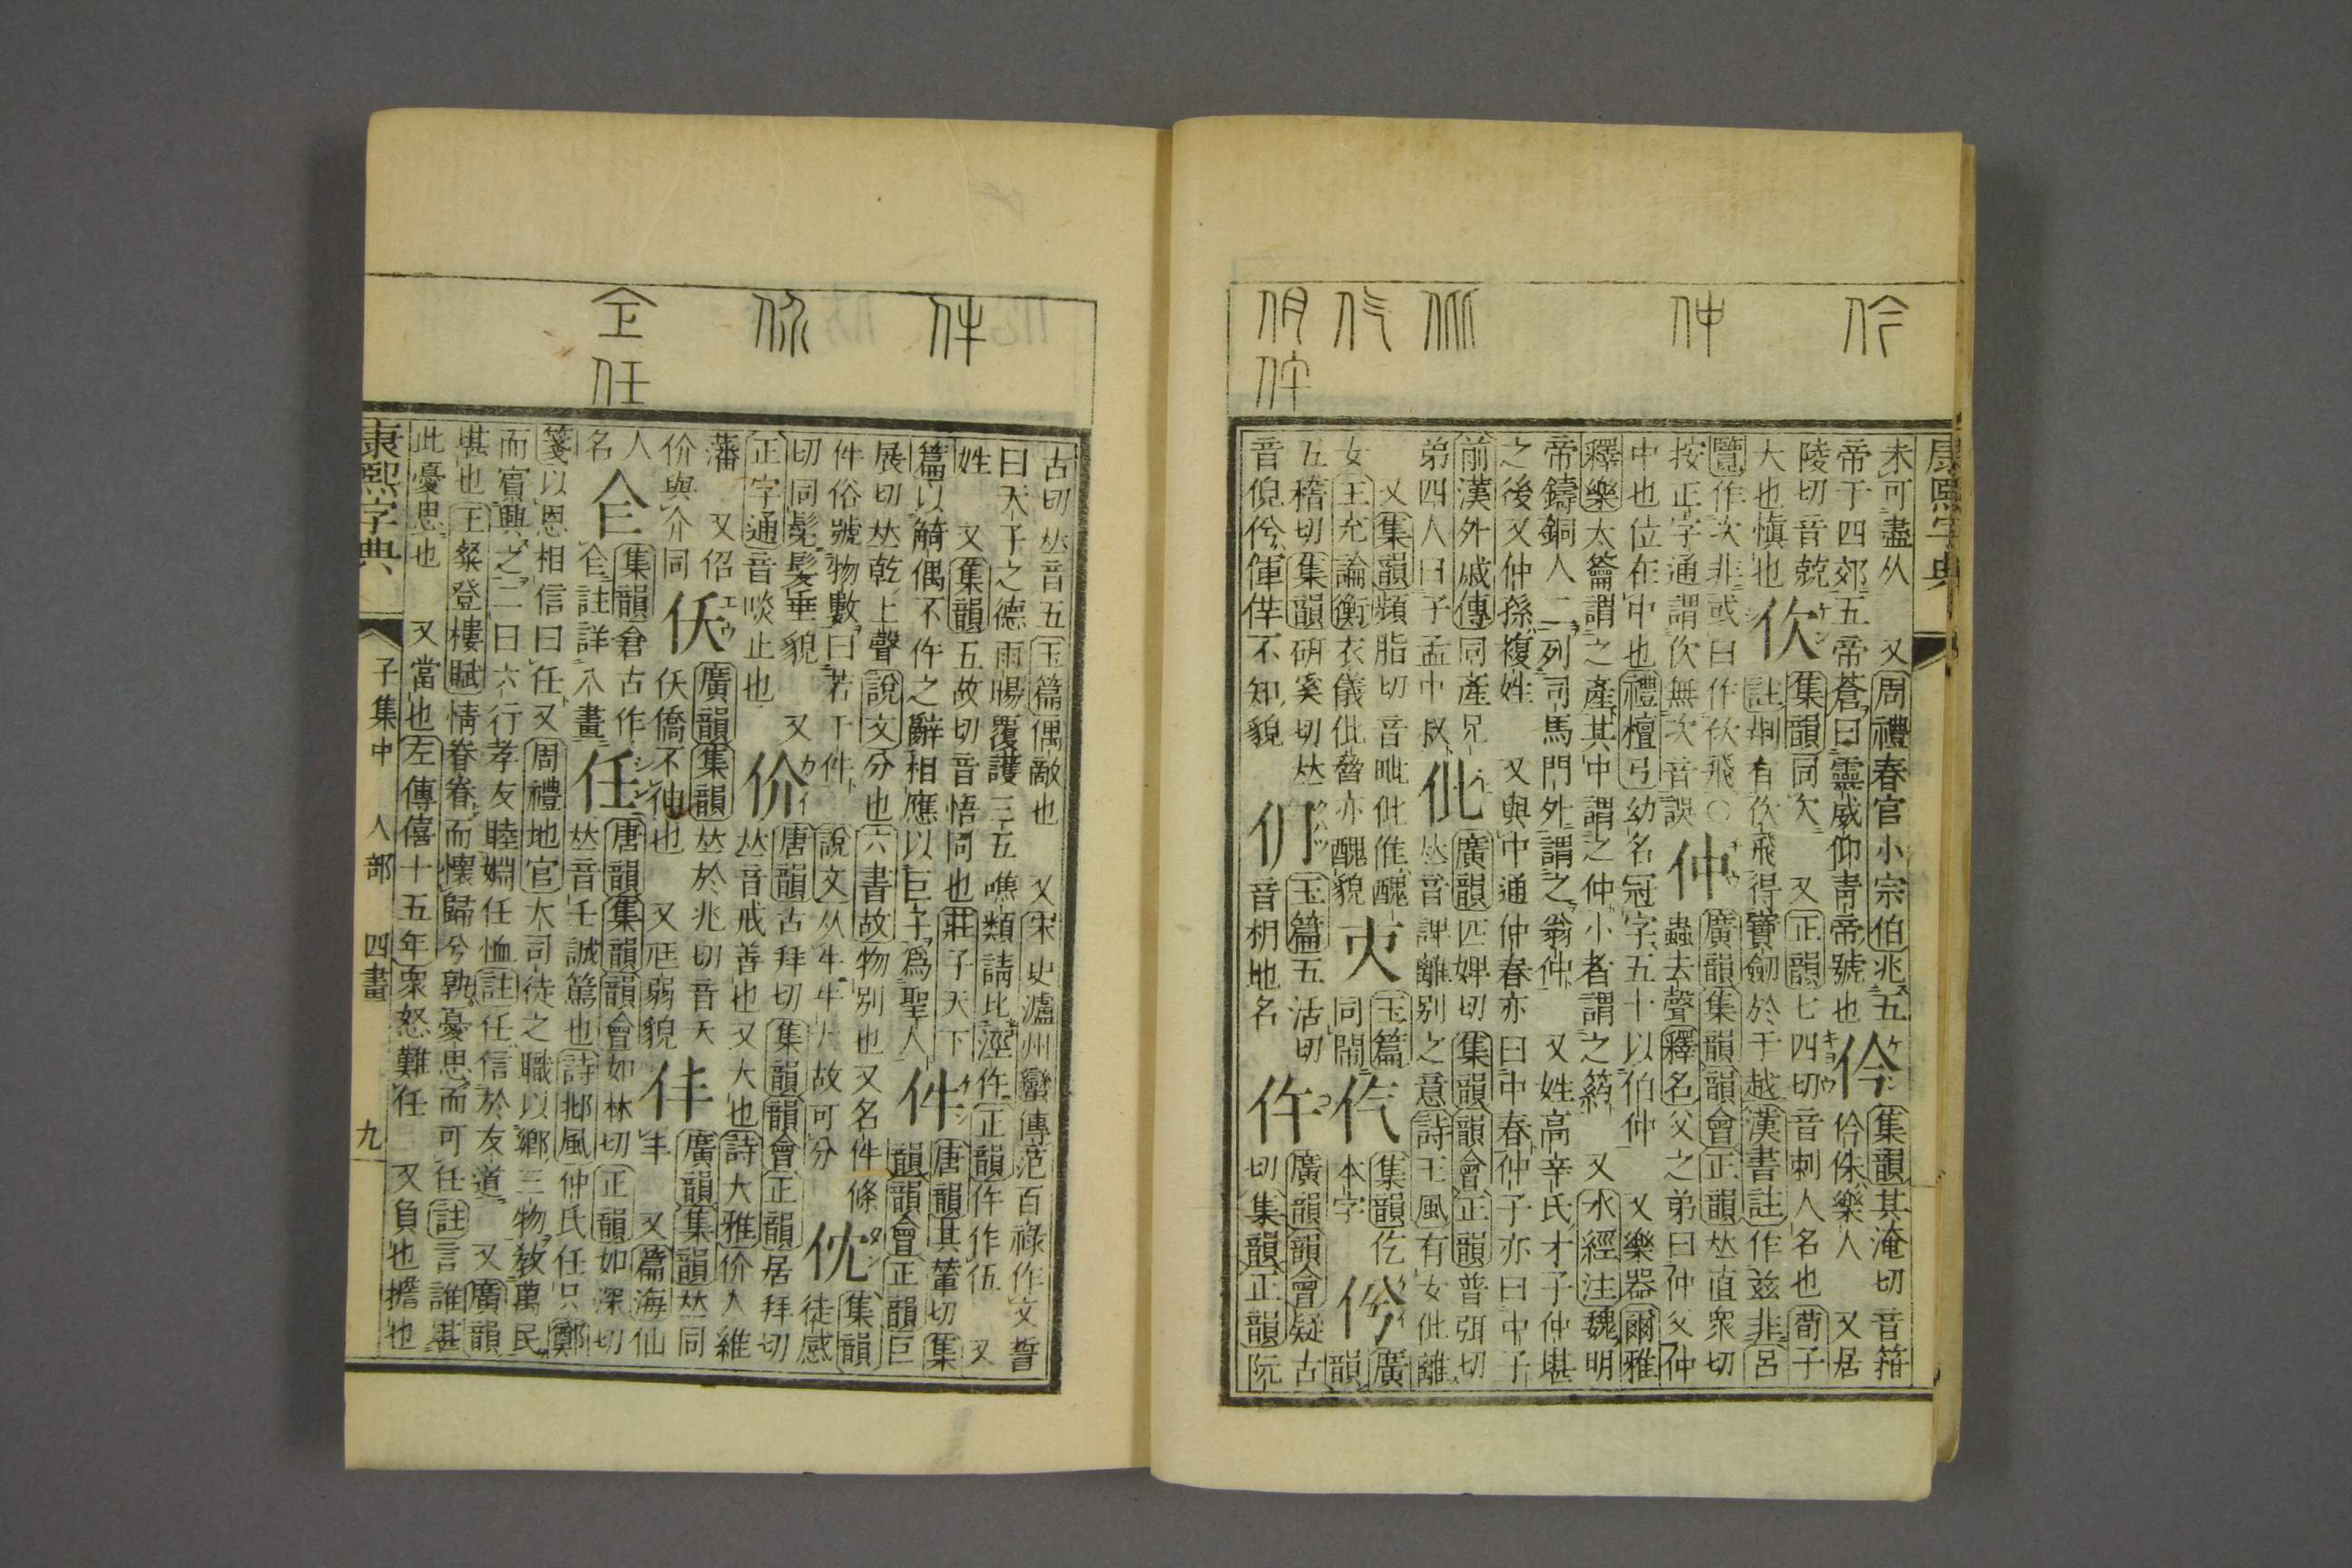 伶
仲
仳
仡
仴
仵
康熙字典
未可盡从 又周禮春官小宗伯兆五 仱 集韻其淹切音箝
帝于四郊五帝蒼曰靈威仰青帝號也 仱侏樂人 又居
陵切音兢 㐸 集韻同欠 又正韻七四切音刺人名也荀子
大也愼也 註荆有佽飛得寶劒於干越漢書註作玆非呂
覽作次非或曰作佽飛○ 仲 廣韻集韻韻會正韻𠀤直衆切
按正字通謂㐸無次音誤 蟲去聲釋名父之弟曰仲父仲
中也位在中也禮檀弓幼名冠字五十以伯仲 又樂器爾雅
釋樂大籥謂之產其中謂之仲小者謂之箹 又水經注魏明
帝鑄銅人二列司馬門外謂之翁仲 又姓高辛氏才子仲堪
之後又仲孫複姓 又與中通仲春亦曰中春仲子亦曰中子
前漢外戚傳同產兄 仳 廣韻匹婢切集韻韻會正韻普弭切
弟四人曰子孟中叔 𠀤音諀離別之意詩王風有女仳離
又集韻頻脂切音毗仳倠醜 玉篇 集韻仡 廣
女王充論衡衣儀仳𦠆亦醜貌 同鬧 本字 韻
五稽切集韻硏奚切𠀤 仴 玉篇五活切 仵 廣韻韻會疑古
音倪 不知貌 音枂地名 切集韻正韻阮
件
价
任
古切𠀤音五玉篇偶敵也 又宋史瀘州蠻傳范百祿作文誓
曰天子之德雨暘覆護三五噍類請比涇仵正韻仵作伍 又
姓 又集韻五故切音悟同也莊子天下 件 唐韻其輦切集
篇以觭偶不仵之辭相應以巨子爲聖人 韻韻會正韻巨
展切𠀤乾上聲說文分也六書故物別也又名件條
件俗號物數曰若干件 說文从牛牛大故可分 㐴 集韻
切同髧髮垂貌 又 价 唐韻古拜切集韻韻會正韻居拜切 徒感
正字通音啖止也 𠀤音戒善也又大也詩大雅价人維
藩 又侶 仸 廣韻集韻𠀤於兆切音夭 仹 廣韻集韻𠀤同
价與介同 仸僑不伸也 又尫弱貌 丰 又篇海仙
人 仺 集韻倉古作 任 唐韻集韻韻會如林切正韻如深切
名 仺註詳八畫 𠀤音壬誠篤也詩邶風仲氏任只鄭
箋以恩相信曰任又周禮地官大司徒之職以鄉三物敎萬民
而賓興之二曰六行孝友睦婣任恤註任信於友道 又廣韻
堪也王粲登樓賦情眷眷而懷歸兮孰憂思而可任註言誰堪
此憂思也 又當也左傳僖十五年衆怒難任 又負也擔也
康熙字典 子集中 人部 四畫 九